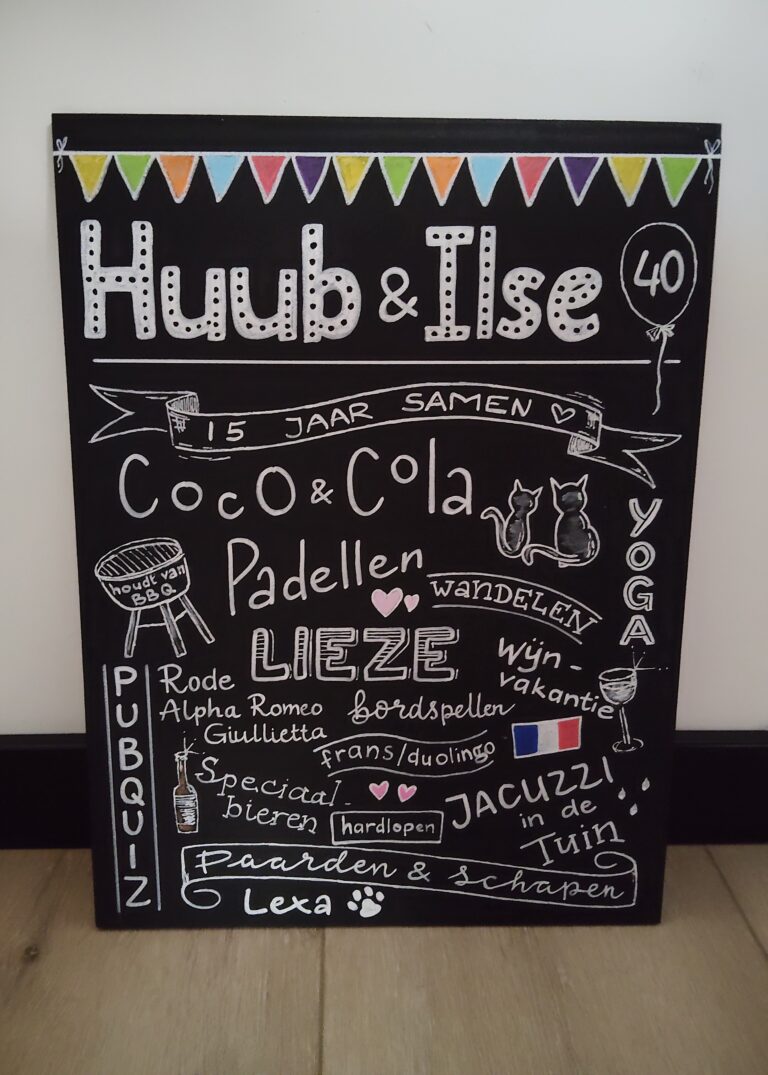 Huub & Ilse
40
15 JAAR SAMEN
Coco & Cola
YOGA
houdt van
BBQ
Padellen
WANDELEN
LIEZE
Wijn-
vakantie
PUBQUIZ
Rode
Alpha Romeo
Giullietta
bordspellen
frans/duolingo
Speciaal
bieren
hardlopen
JACUZZI
in de
Tuin
Paarden & schapen
Lexa